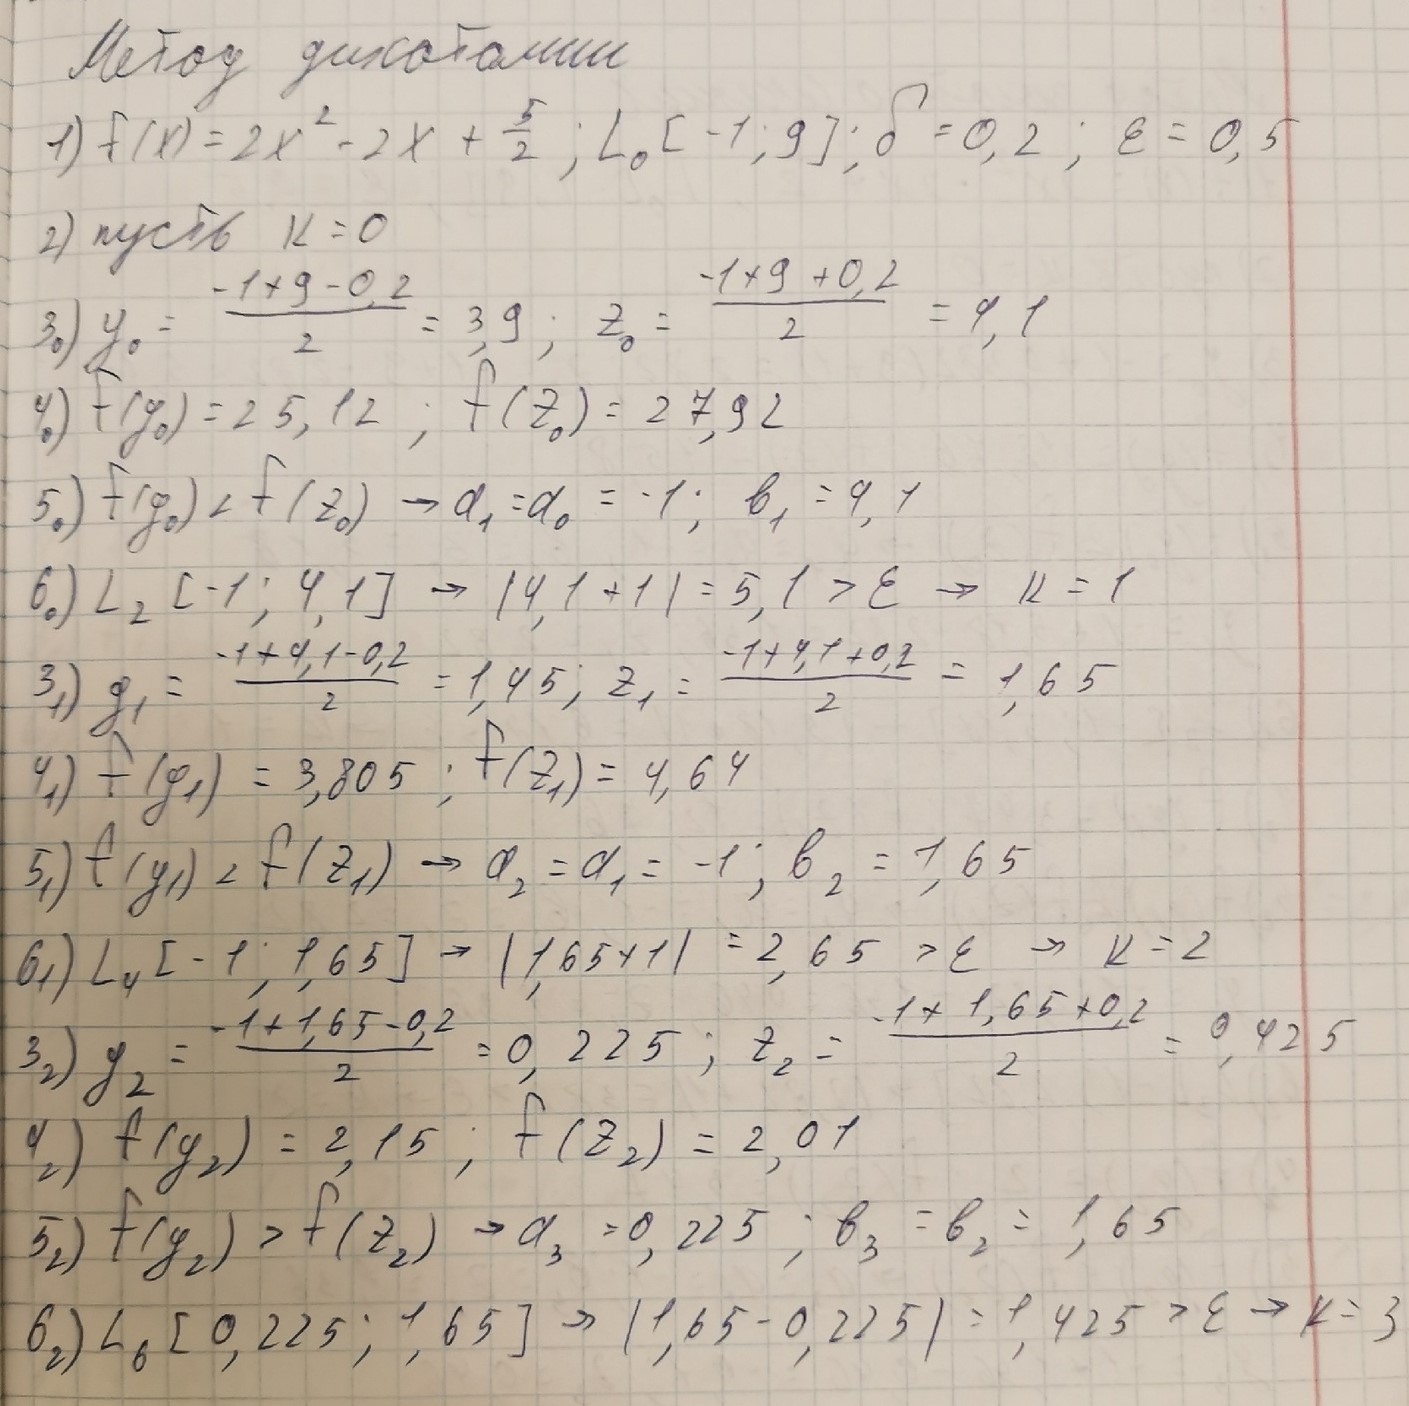 Метод дихотомии
1) f(x) = 2x² - 2x + 5/2 ; L₀ [-1; 9]; δ = 0,2 ; ε = 0,5
2) пусть K = 0
3₀) y₀ = (-1+9-0,2)/2 = 3,9 ; z₀ = (-1+9+0,2)/2 = 4,1
4₀) f(y₀) = 25,12 ; f(z₀) = 27,92
5₀) f(y₀) < f(z₀) → a₁ = a₀ = -1 ; b₁ = 4,1
6₀) L₂ [-1; 4,1] → |4,1+1| = 5,1 > ε → K = 1
3₁) y₁ = (-1+4,1-0,2)/2 = 1,45 ; z₁ = (-1+4,1+0,2)/2 = 1,65
4₁) f(y₁) = 3,805 ; f(z₁) = 4,64
5₁) f(y₁) < f(z₁) → a₂ = a₁ = -1 ; b₂ = 1,65
6₁) L₄ [-1; 1,65] → |1,65+1| = 2,65 > ε → K = 2
3₂) y₂ = (-1+1,65-0,2)/2 = 0,225 ; z₂ = (-1+1,65+0,2)/2 = 0,425
4₂) f(y₂) = 2,15 ; f(z₂) = 2,01
5₂) f(y₂) > f(z₂) → a₃ = 0,225 ; b₃ = b₂ = 1,65
6₂) L₆ [0,225; 1,65] → |1,65-0,225| = 1,425 > ε → K = 3